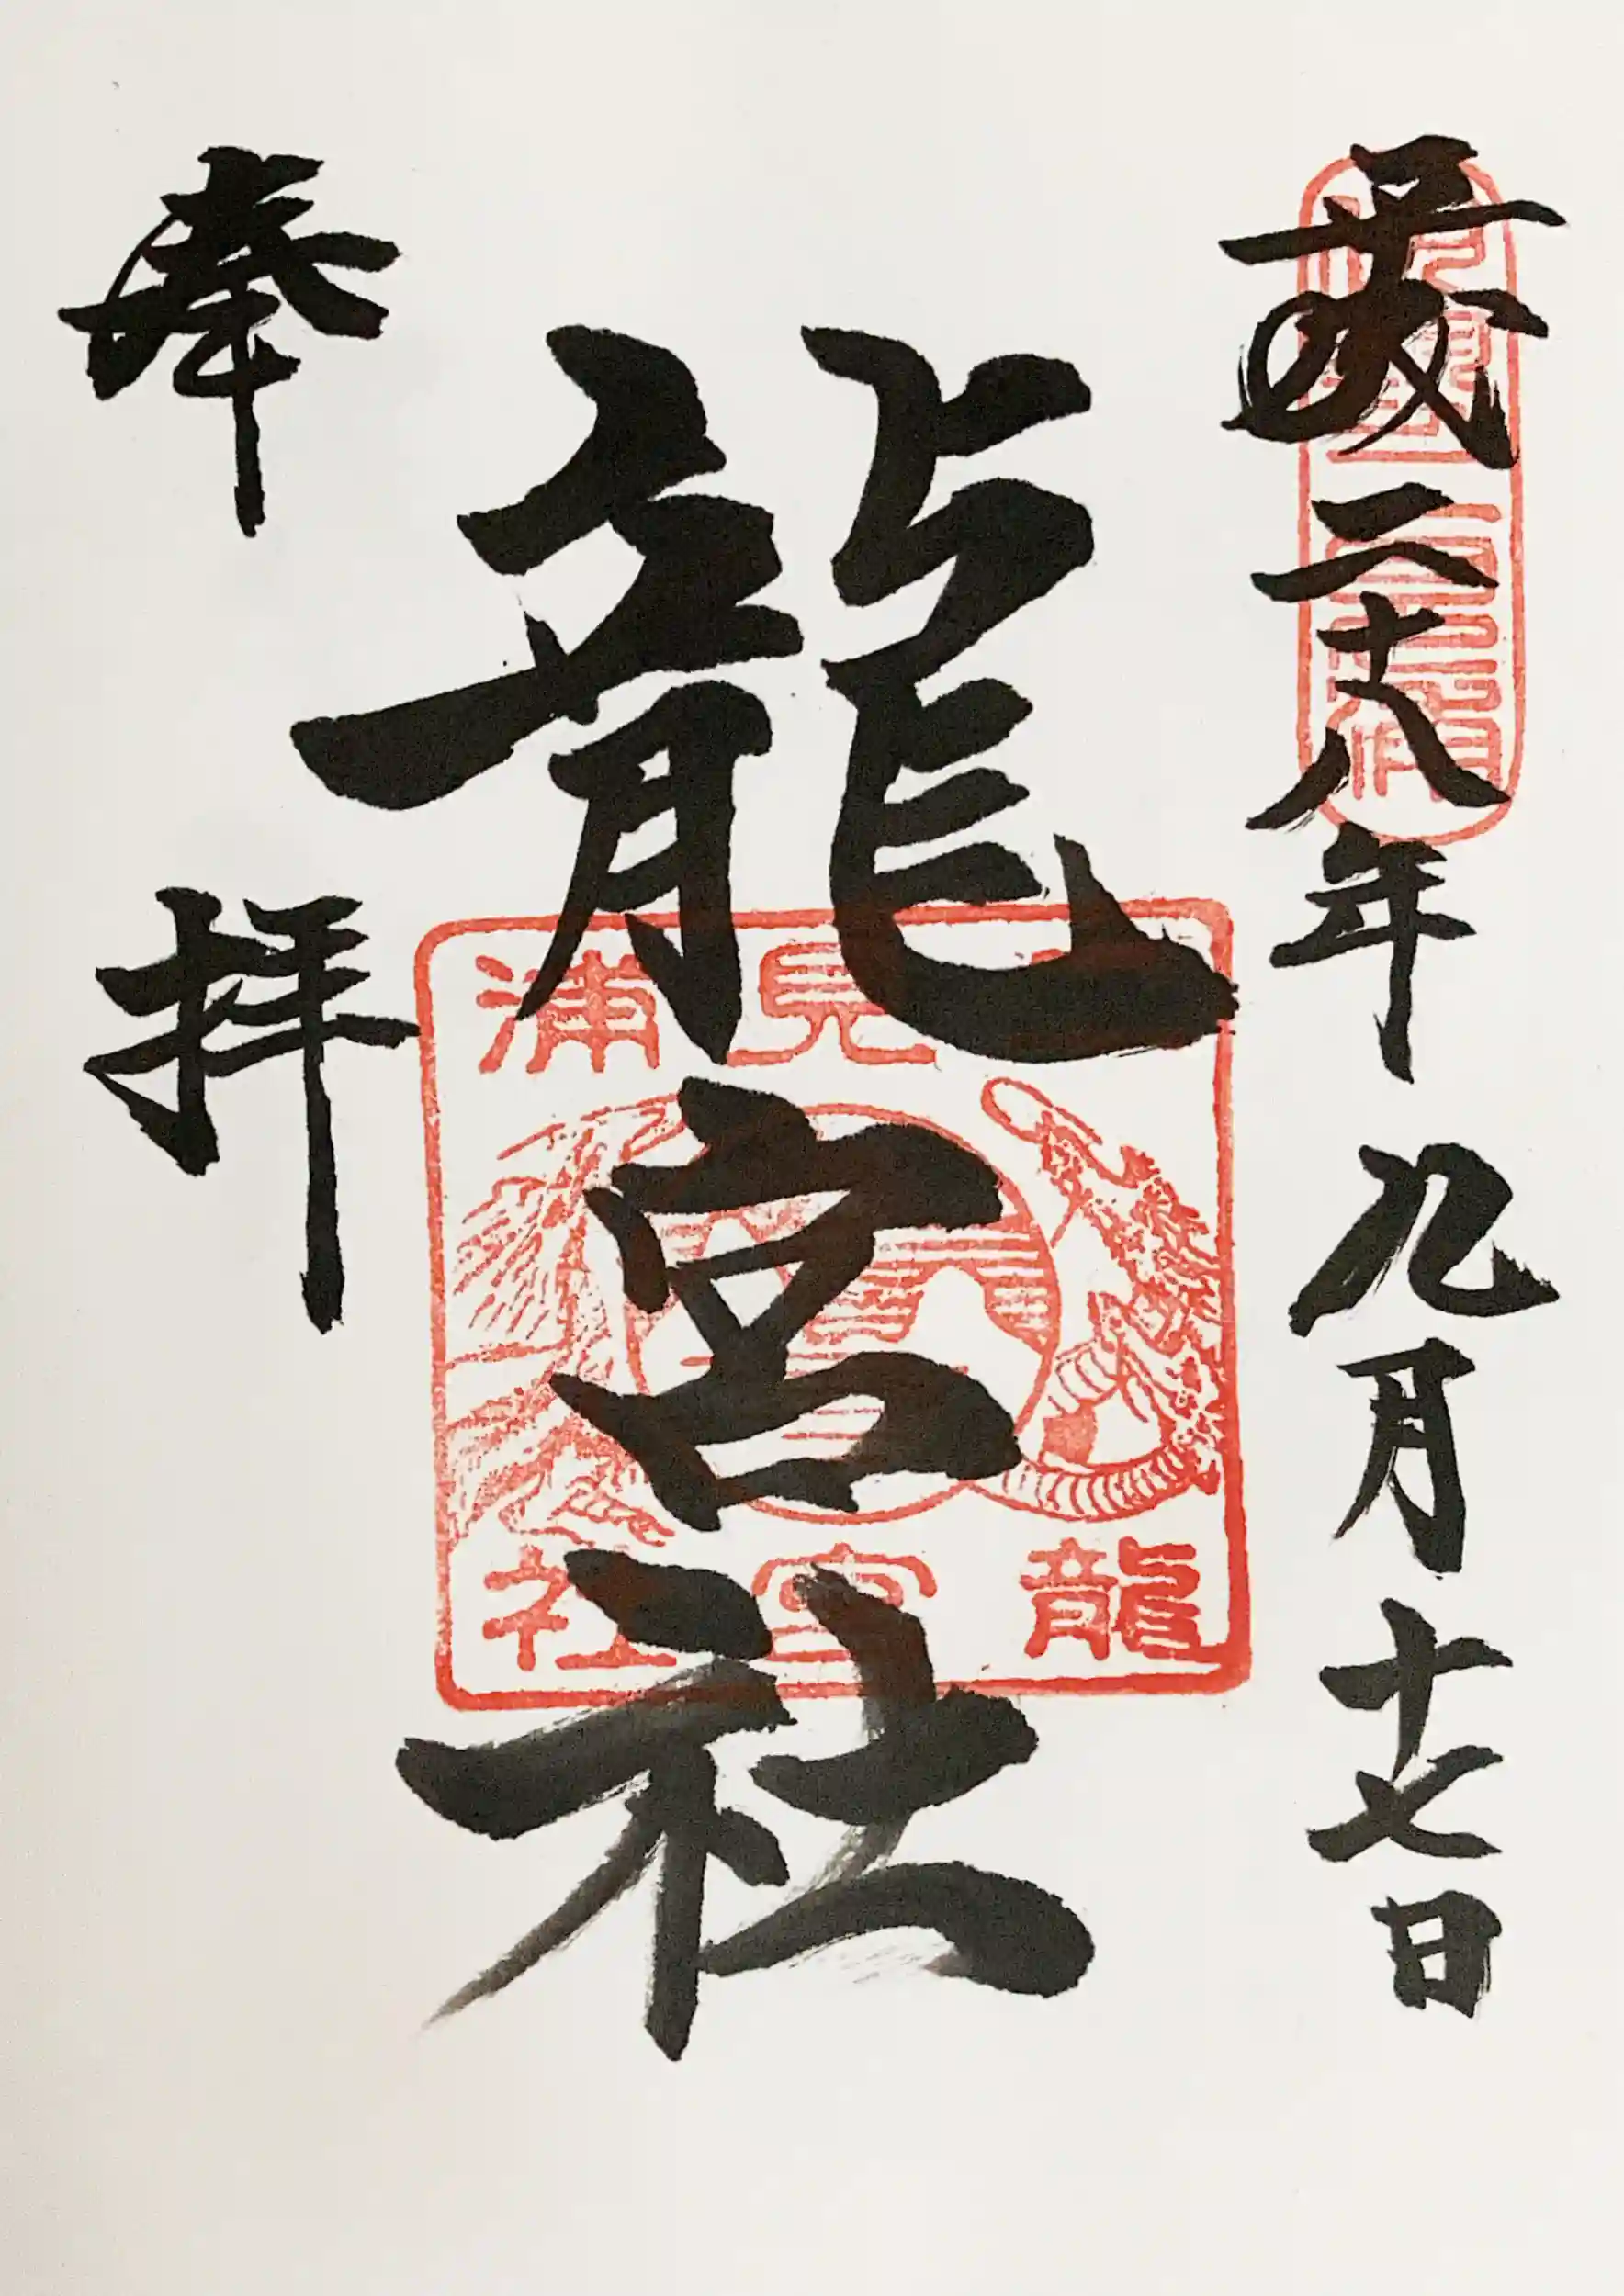 平成二十八年九月十七日
龍宮社
奉拝
二見浦
龍宮社